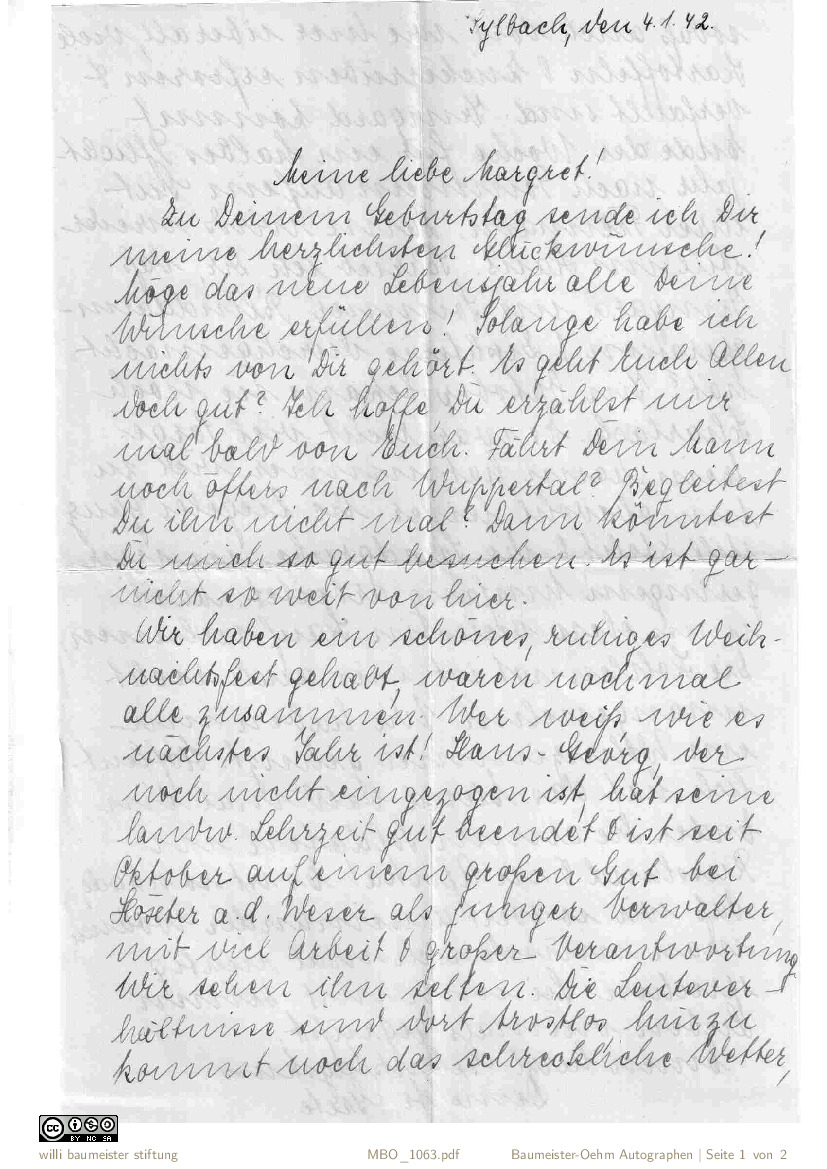 Sylbach, den 4.1.42.
Meine liebe Margret!
Zu Deinem Geburtstag sende ich Dir
meine herzlichsten Glückwünsche!
Möge das neue Lebensjahr alle Deine
Wünsche erfüllen! Solange habe ich
nichts von Dir gehört. Es geht Euch Allen
doch gut? Ich hoffe, Du erzählst mir
mal bald von Euch. Fährt Dein Mann
noch öfters nach Wuppertal? Begleitest
Du ihn nicht mal? Dann könntest
Du mich so gut besuchen. Es ist gar-
nicht so weit von hier.
Wir haben ein schönes, ruhiges Weih-
nachtsfest gehabt, waren nochmal
alle zusammen. Wer weiß wie es
nächstes Jahr ist! Hans-Georg, der
noch nicht eingezogen ist, hat seine
landw. Lehrzeit gut beendet & ist seit
Oktober auf einem großen Gut bei
a.d. Weser als junger Verwalter,
mit viel Arbeit & großer Verantwortung.
Wir sehen ihn selten. Die Leutever-
hältnisse sind dort trostlos hinzu
kommt noch das schreckliche Wetter,
CC BY NC SA
willi baumeister stiftung
MBO_1063.pdf
Baumeister-Oehm Autographen | Seite 1 von 2